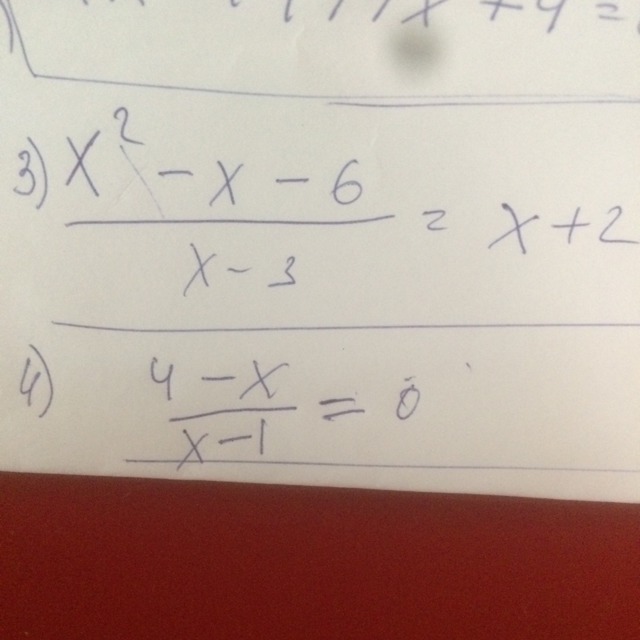 x + 4 =
3) x² - x - 6
x - 3
= x + 2
4) 4 - x
x - 1
= 0